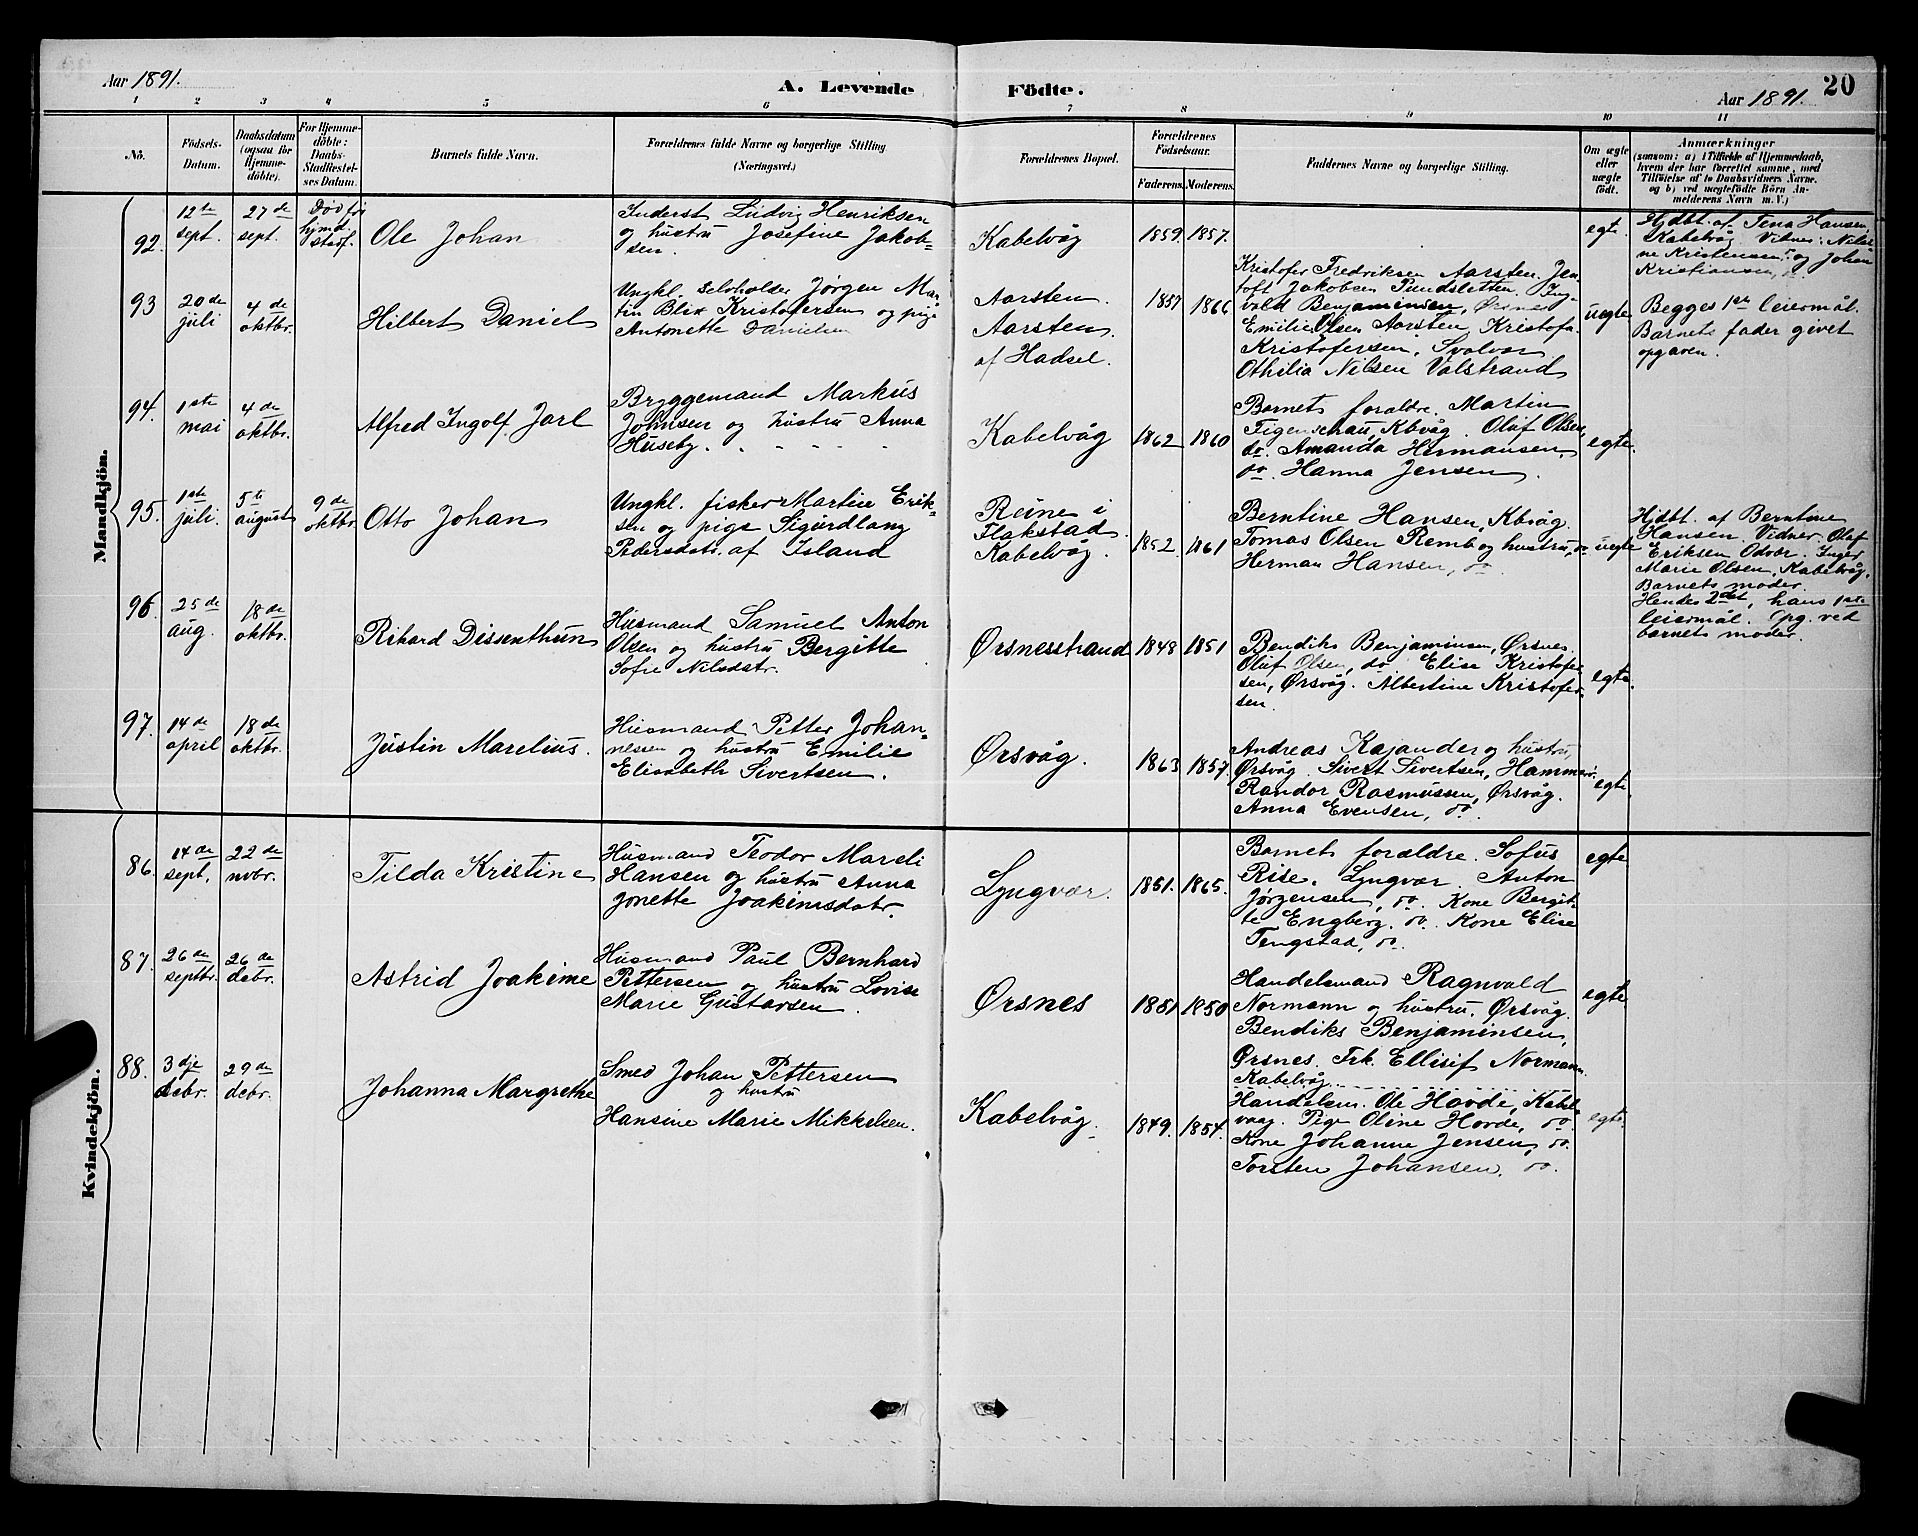 Aar 1891.
A. Levende
Födte.
Aar 1891.
20
1 2 3 4 5 6 7 8 9 10 11
No.
Födsels-
Datum.
Daabsdatum
(ogsaa for
Hjemme-
döbte).
For Hjemme-
döbte:
Daabs-
Stadfæstel-
ses Datum.
Barnets fulde Navn.
Forældrenes fulde Navne og borgerlige Stilling
(Næringsvei.)
Forældrenes Bopæl.
Forældrenes
Födselsaar.
Faderens. Moderens.
Faddernes Navne og borgerlige Stilling.
Om ægte
eller
uægte
født.
Anmærkninger
(saasom: a) i Tilfælde af Hjemmedaab,
hvem der har forrettet samme, med
Tilföielse af to Daabsvidners Navne,
og b) ved uægtefödte Börn An-
melderens Navn m. V.)
Mandkjön.
92.
12te
sept.
27de
sept.
Död för
hjmd.
stadf.
Ole Johan
Inderst Ludvig Henriksen
og hustru Josefine Jakob-
sen.
Kabelvåg
1859. 1857.
egte.
Hjdbt. af Tina Hansen
Kabelvåg. Vitner: Nils
ne Kristensen do og Johan
Kristiansen, do.
93
20de
juli
4de
oktbr.
Hilbert Daniel
Ungkl. selvholder Jørgen Mar-
tin Blix Kristofersen og pige
Antonette Danielsen
Aarsten.
Aarsten
af Hadsel.
1857 1866
Kristofer Fredriksen Aarsten. Jen-
toft Jakobsen Pundsletten. Ing-
vald Benjaminsen, Ørsnes
Emilie Olsen Aarsten, Kristofa
Kristofersen, Svolvær
Othilia Nilsen Valstrand
uegte
Begges 1ste leiermål.
Barnets fader givet
opgaven.
94.
1ste
mai
4de
oktbr.
Alfred Ingolf Jarl
Bryggemand Markus
Johnsen og hustru Anna
Huseby.
Kabelvåg
1862 1860
Barnets forældre. Martin
Figenschau, Kbvåg. Olaf Olsen,
do. Amanda Hermansen,
do. Hanna Jensen.
egte.
95.
1ste
juli.
5te
august
9de
oktbr.
Otto Johan
Ungkl. fisker Martin Erik-
sen og pige Sigurdlang
Pedersdatr. af Island
Reine i
Flakstad.
Kabelvåg.
1852. 1861
Berntine Hansen, Kbvåg.
Tomas Olsen Remb og hustru, do
Herman Hansen, do
uegte
Hjdbt. af Berntine
Hansen. Vidner Olaf
Eriksen Odvær. Inger
Marie Olsen, Kabelvåg.
Barnets moder.
Hendes 2det, hans 1ste
leiermål. Opg. ved
barnets moder.
96.
25de
aug.
18de
oktbr.
Rikard Dissenthun
Husmand Samuel Anton
Olsen og hustru Bergitte
Sofie Nilsdatr.
Ørsnesstrand
1848 1851
Bendiks Benjaminsen, Ørsnes.
Oluf Olsen, do. Elise Kristofer-
sen, Ørsvåg. Albertine Kristofer-
sen.
egte.
97.
14de
april
18de
oktbr.
Justin Marelius.
Husmand Petter Johan-
nesen og hustru Emilie
Elisabeth Sivertsen.
Ørsvåg.
1863 1857.
Andreas Kajander og hustru,
Ørsvåg. Sivert Sivertsen, Hammerö.
Randor Rasmussen, Ørsvåg.
Anna Evensen, do.
egte.
Kvindekjön.
86.
14de
sept.
22de
novbr.
Tilda Kristine
Husmand Teodor Mareli
Hansen og hustru Anna
Jonette Joakimsdatr.
Lyngvær.
1851. 1865.
Barnets forældre. Sofus
Rise, Lyngvær. Anton
Jørgensen, do. Kone Bergit-
te Engberg, do. Kone Elise
Tengstad, do.
egte
87.
26de
septbr.
26de
debr.
Astrid Joakime
Husmand Paul Bernhard
Pettersen og hustru Lovise
Marie Gustavsen.
Ørsnes
1851 1850
Handelsmand Ragnvald
Normann og hustru, Ørsvåg.
Bendiks Benjaminsen,
Ørsnes. Frk. Ellisif Normann
Kabelvåg
egte
88.
3dje
debr.
29de
debr.
Johanna Margrethe
Smed Johan Pettersen
og hustru
Hansine Marie Mikkelsen.
Kabelvåg.
1849. 1854.
Handelsm. Ole Hovde, Kabel-
vaag. Pige Oline Hovde, do
Kone Johanne Jensen, do.
Torsten Johansen, do.
egte.